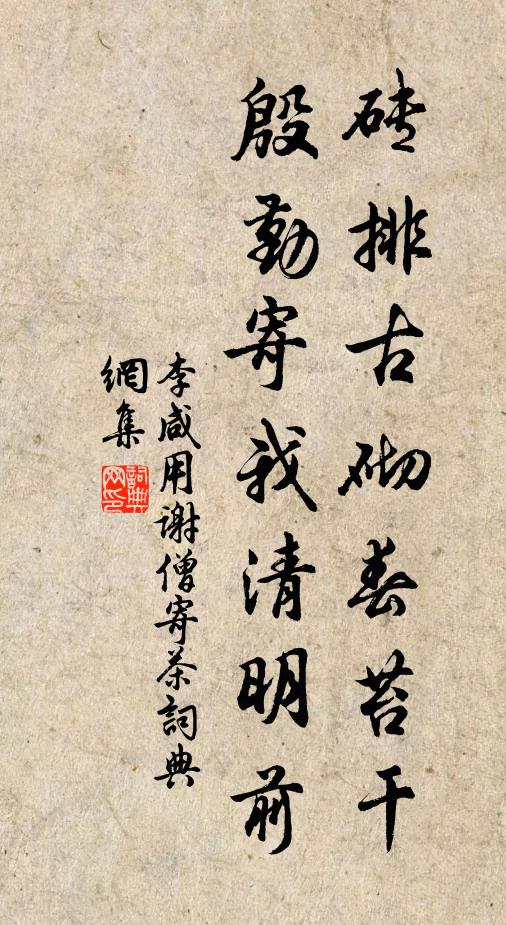 砖排古砌春苔干
殷勤寄我清明前
李咸用谢僧寄茶詞典
網集
詞典
网印